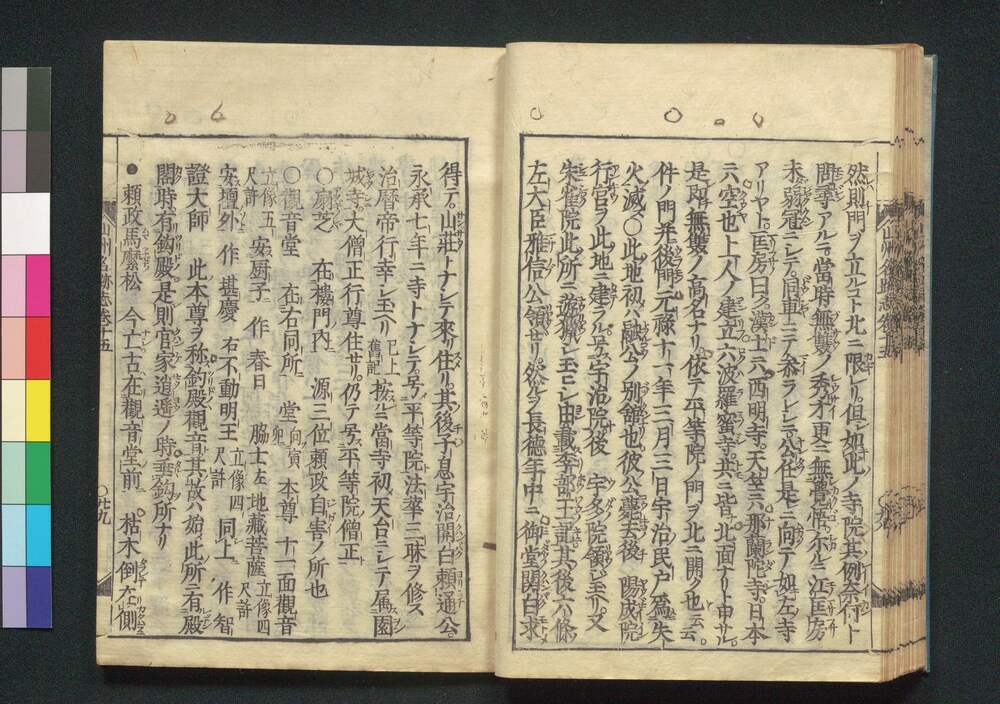 然則門ヲ立ルコト北ニ限レリ。但シ如此ノ寺院其例奈何ト
問尋アルニ。當時無雙ノ秀才更ニ無覺悟。尓ルニ江匡房
未弱冠ニシテ。同車ニテ参ラレシニ公任是ニ向テ如左寺
アリヤト。匡房曰ク漢土ニハ西明寺。天竺ニハ那蘭陀寺。日本
ニハ空也上人ノ建立六波羅蜜寺。共ニ皆北面ナリト申サル。
是即無雙ノ高名ナリ。依テ平等院ノ門ヲ北ニ開ク也云云。
件ノ門并後門元禄十一年三月三日宇治民戸爲失
火滅ス〇此地初ハ融公ノ別館也彼公薨去後 陽成院
行宮ヲ此地ニ建ラル。号宇治院後 宇多院領シ玉リ。又
朱雀院此所ニ遊獵シ玉ヒシ由載李部王記其後六條
左大臣雅信公領セリ。然ルヲ長德年中ニ御堂關白求
得テ。山莊トナシテ來リ住リ。其後子息宇治關白頼通公
永承七年ニ寺トナシテ号ス平等院法華三昧ヲ修ス
治暦帝行幸シ玉ヘリ 已上舊記 按ルニ當寺初天台ニシテ属園
城寺大僧正行尊住セリ。仍テ号ス平等院僧正
〇扇芝 在樓門内 源三位頼政自害ノ所也
〇觀音堂 在右同所 堂向寅卯 本尊 十一面觀音
立像五尺許 安厨子 作春日 脇士左 地藏菩薩 立像四尺許
安壇外 作甚慶 右不動明王 立像四尺許 同上 作智
證大師 此本尊ヲ称釣殿觀音其故ハ始メ此所ニ有殿
閣時有釣殿是則官家逍遥ノ時垂釣所ナリ
● 頼政馬繋松 今亡古在觀音堂前 枯木倒在側
山州名跡志巻十五
〇廿九
山州名跡志巻十五